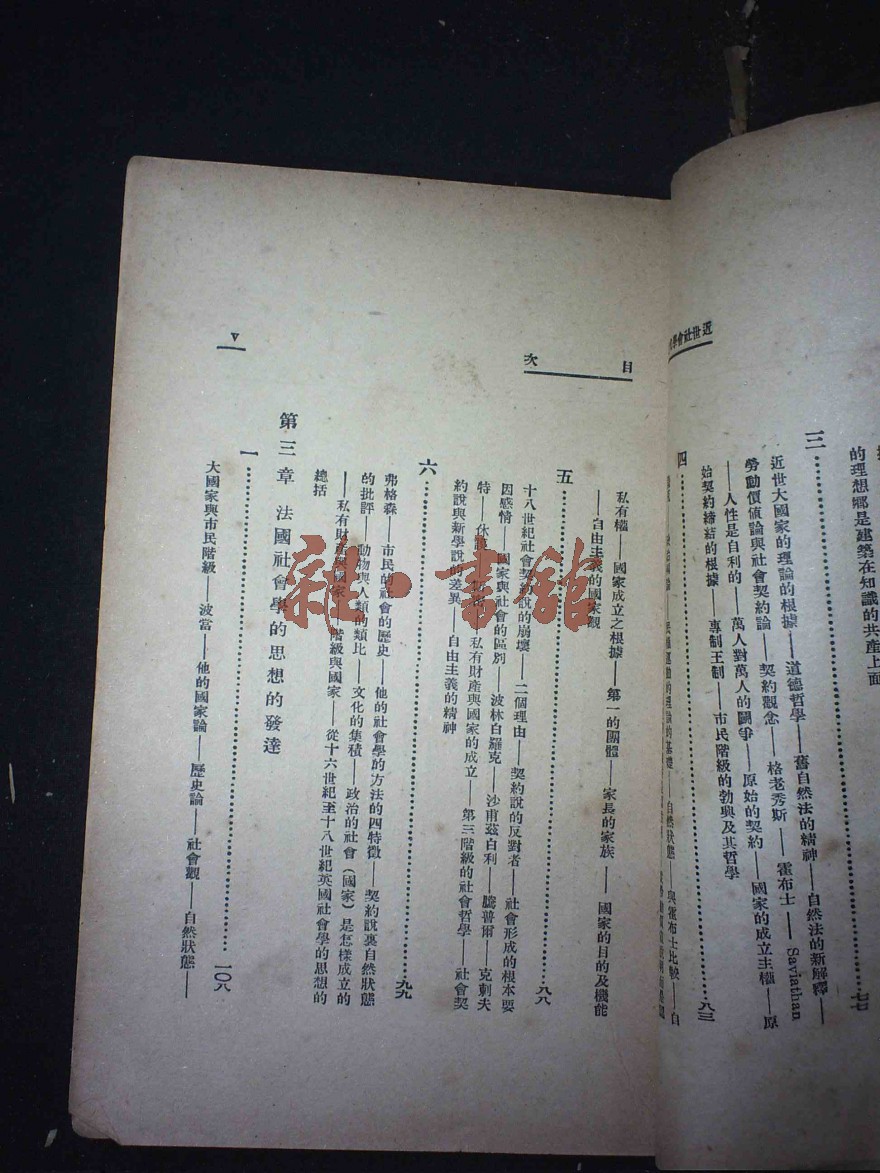 的理想鄉是建築在知識的共產上面
三……七七
近世大國家的理論的根據——道德哲學——舊自然法的精神——自然法的新解釋——
勞動價值論與社會契約論——契約觀念——格老秀斯——霍布士——Saviathan
——人性是自利的——萬人對萬人的鬪爭——原始的契約——國家的成立主權——原
始契約締結的根據——專制王制——市民階級的勃興及其哲學
近世社會學
四……八三
自然狀態——與霍布士比較——自
目次
私有權——國家成立之根據——第一的團體——家長的家族——國家的目的及機能
——自由主義的國家觀
五……八八
十八世紀社會契約說的崩壞——二個理由——契約說的反對者——社會形成的根本要
因感情——國家與社會的區別——波林白羅克——沙甫茲白利——騰普爾——克剌夫
特——休謨——私有財產與國家的成立——第三階級的社會哲學——社會契
約說與新學說的差異——自由主義的精神
六……九九
弗格森——市民的社會的歷史——他的社會學的方法的四特徵——契約說裏自然狀態
的批評——動物與人類的類比——文化的集積——政治的社會（國家）是怎樣成立的
——私有財產與國家——階級與國家——從十六世紀至十八世紀英國社會學的思想的
總括
第三章 法國社會學的思想的發達
一……一〇八
大國家與市民階級——波當——他的國家論——歷史論——社會觀——自然狀態——
V